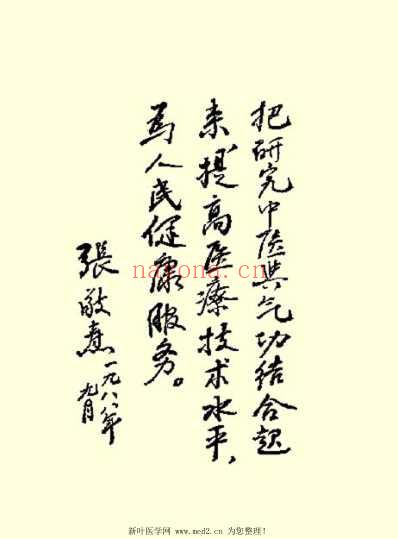 把研究中医與气功结合起
来,提高医療技术水平,
為人民健康服务。
張敬焘 一九八八年
九月
nayona.cn
新叶医学网 www.med2.cn 为您整理!